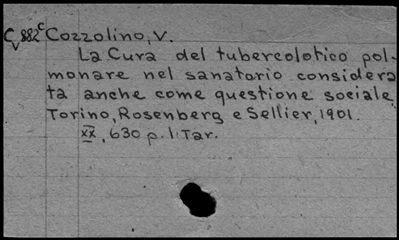 Cv 882c Cozzolino, V.
La Cura del tubercolotico pol-
monare nel sanatorio considera
ta anche come questione sociale.
Torino, Rosenberg e Sellier, 1901.
XX, 630 p. 1. Tar.